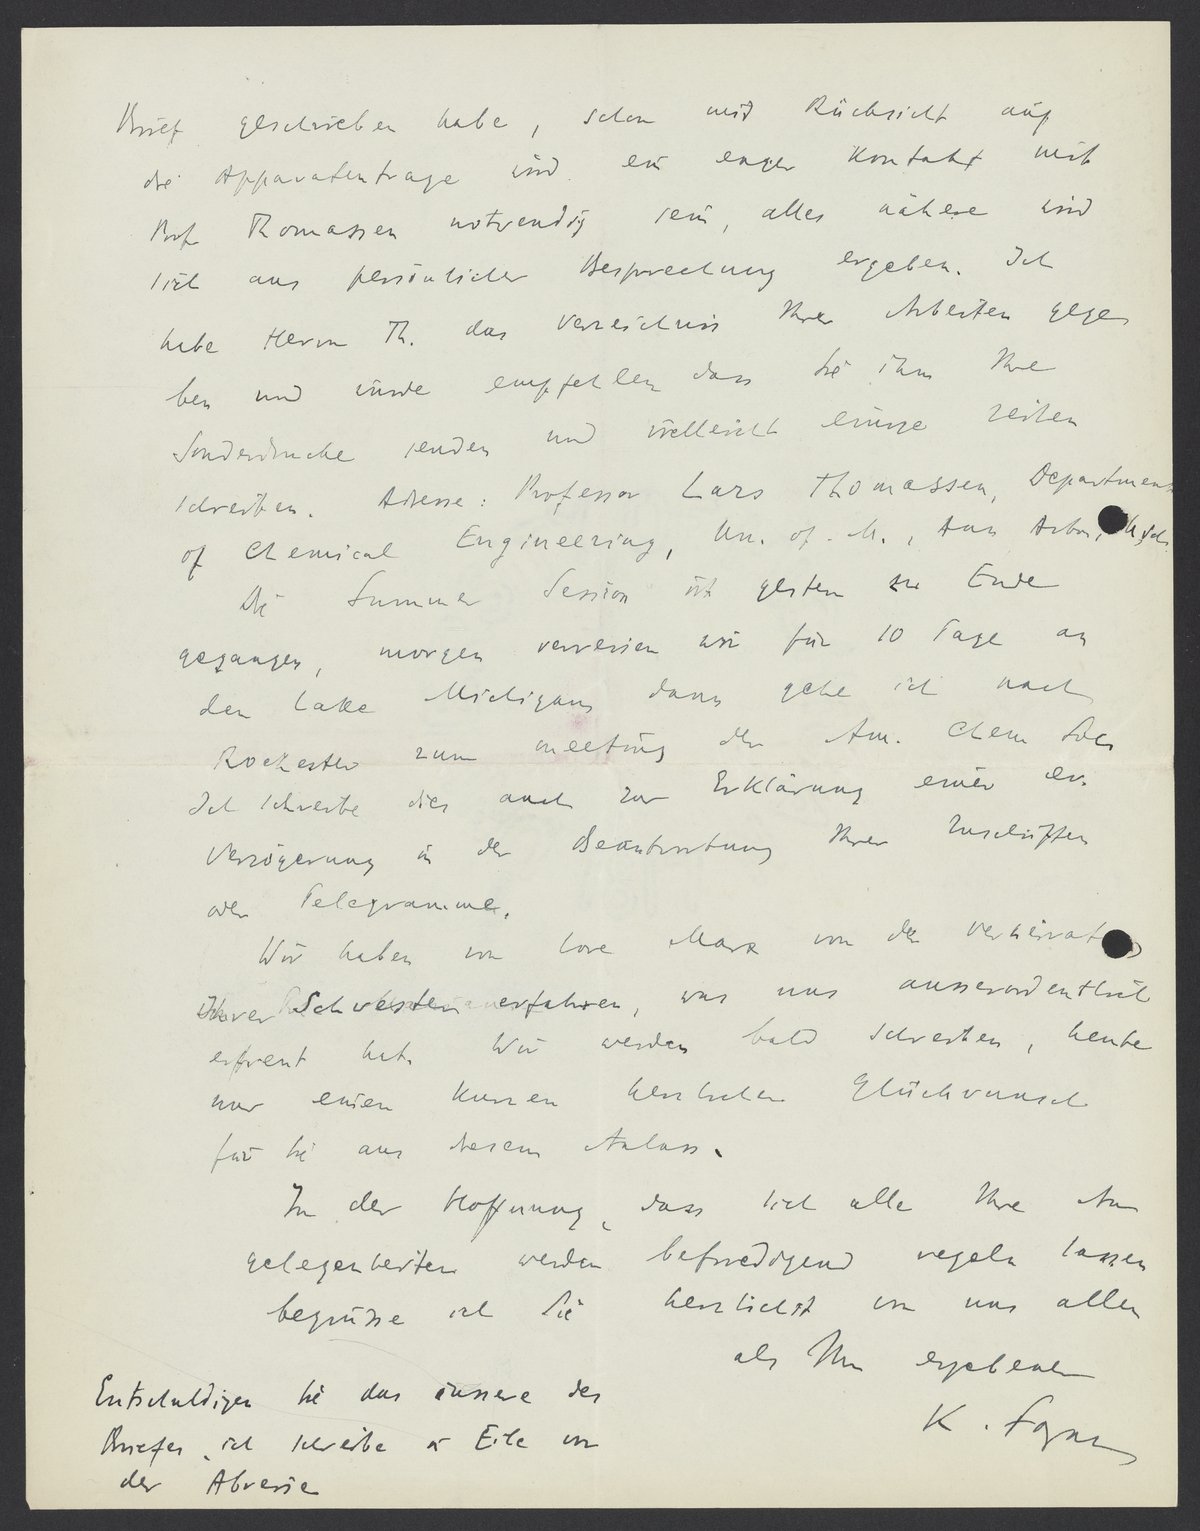 Brief geschrieben habe, schon mit Rücksicht auf
die Apparatenfrage wird ein enger Kontakt mit
Prof Thomassen notwendig sein, alles nähere wird
sich aus persönlicher Besprechung ergeben. Ich
habe Herrn Th. das Verzeichnis Ihrer Arbeiten gege
ben und würde empfehlen dass Sie ihm Ihre
Sonderdrucke senden und vielleicht einige Zeilen
schreiben. Adresse: Professor Lars Thomassen, Department
of Chemical Engineering, Un. of. M., Ann Arbor, Mich.
Die Summer Session ist gestern zu Ende
gegangen, morgen verreisen wir für 10 Tage an
den Lake Michigan, dann gehe ich nach
Rochester zum meeting der Am. Chem Soc.
Ich schreibe dies auch zur Erklärung einer ev.
Verzögerung in der Beantwortung Ihrer Zuschriften
oder Telegramme.
Wir haben von Lore Marx von der
Ihrer Schwester erfahren, was uns ausserordentlich
erfreut hat. Wir werden bald schreiben, heute
nur einen kurzen herzlichen Glückwunsch
für Sie aus diesem Anlass.
In der Hoffnung, dass sich alle Ihre An
gelegenheiten werden befriedigend regeln lassen
begrüsse ich Sie herzlichst von uns allen
als Ihr ergebener
K. Fajans
Entschuldigen Sie das äussere des
Briefes, ich schreibe in Eile vor
der Abreise